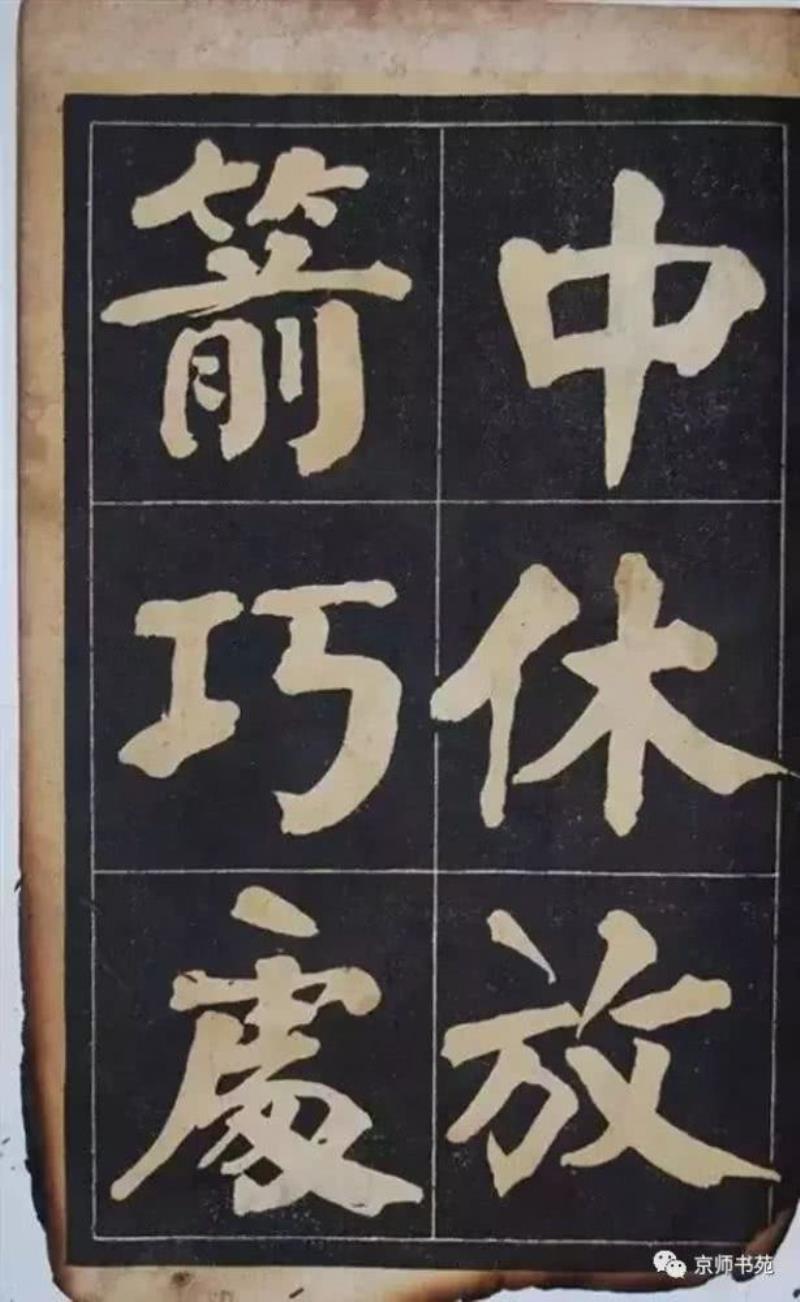 中休放
箭巧處
京师书苑